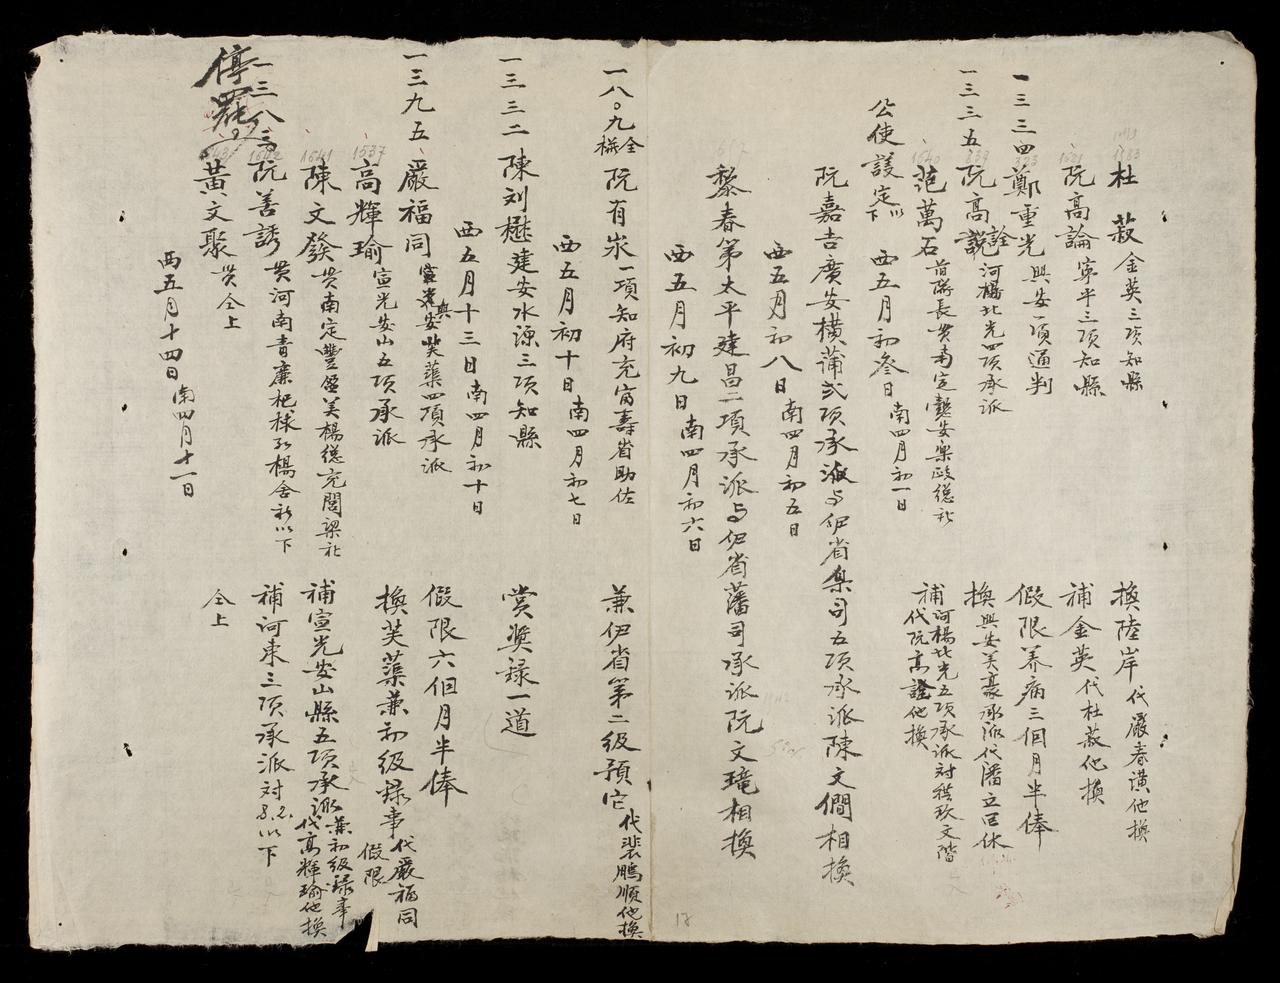 杜菽金英三項知縣 換陸岸代嚴春潢他換
阮高論寧平三項知縣 補金英代杜菽他換
一三三四 鄭重光興安一項通判 假限养病三個月半俸
一三三五 阮高說詮河楊北光四項承派 換興安美豪承派代潘立召休
范萬石 前隊長貫南定懿安樂政總社 補河楊北光五項承派对 代阮高證他換
公使護定以下 西五月初叁日南四月初一日
阮嘉吉廣安橫蒲弍項承派与伊省臬司五項承派陳文僩相換
西五月初八日南四月初五日
黎春第太平建昌二項承派与伊省藩司承派阮文琦相換
西五月初九日南四月初六日
一八〇九 仝 阮有永一項知府充富壽省助佐 兼伊省第二級預它代裴鵬順他換
西五月初十日南四月初七日
一三三二 陳刘懋建安水源三項知縣 賞奖錄一道
西五月十三日南四月初十日
一三九五 嚴福同安芙蕖四項承派 假限六個月半俸
1537 高輝瑜宣光安山五項承派 換芙蕖兼初级錄事代嚴福同假限
1641 陳文發貫南定豐盈美楊總亮閭梁社 補宣光安山縣五項承派兼初级錄事代高輝瑜他換
一三八三 1642 阮善誘貫河南青廉 楊舍社以下 補河東三項承派对以下
停罷 黃文聚貫仝上 仝上
西五月十四日南四月十一日
18